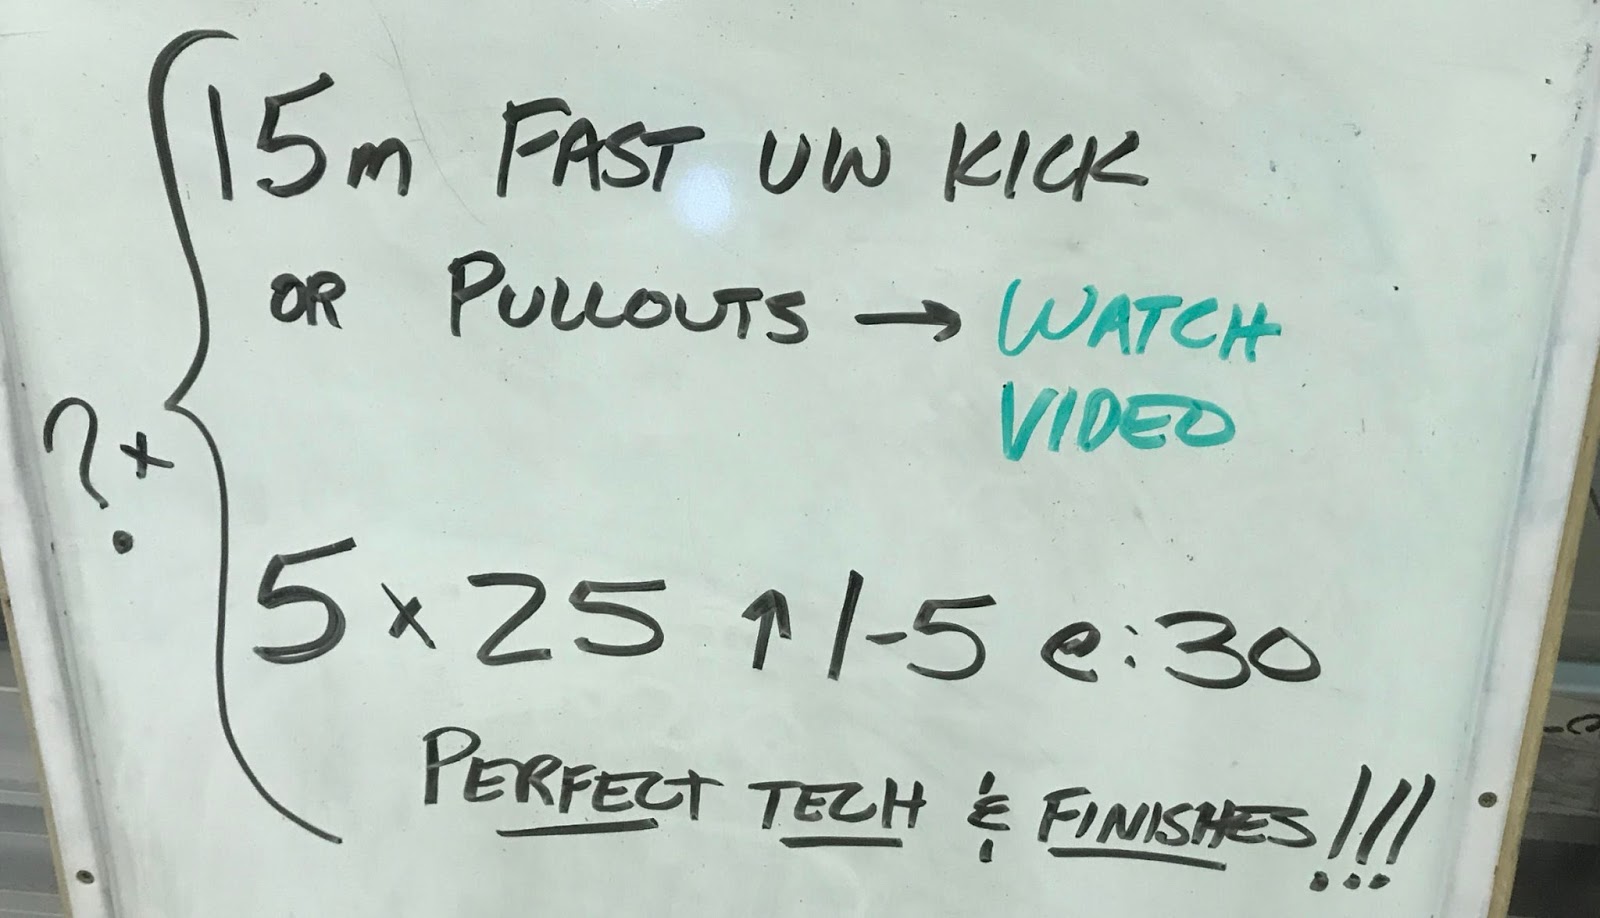 15m FAST UW KICK
OR PULLOUTS → WATCH
VIDEO
?x
5 x 25 ↑/-5 @:30
PERFECT TECH & FINISHES!!!